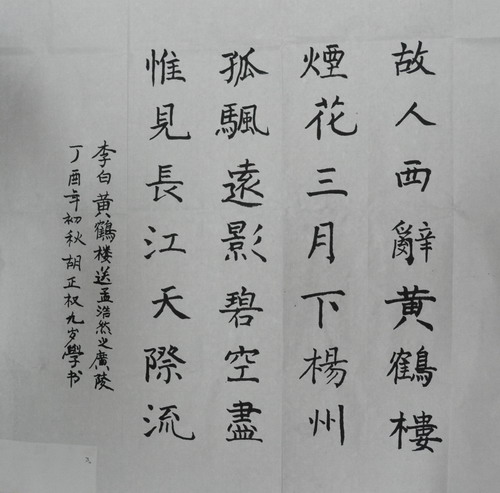 故人西辭黄鶴樓
煙花三月下楊州
孤颿遠影碧空盡
惟見長江天際流
李白黄鶴楼送孟浩然之廣陵
丁酉年初秋胡正权九岁學书